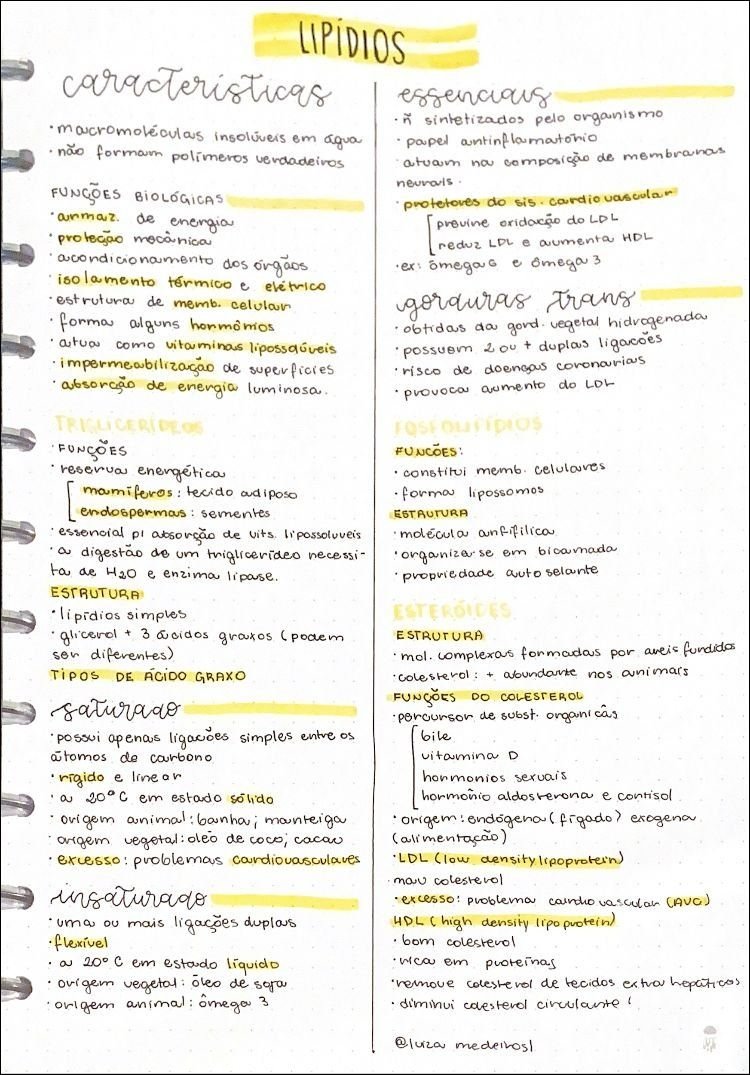 LIPÍDIOS
características
· macromoléculas insolúveis em água
· não formam polímeros verdadeiros
FUNÇÕES BIOLÓGICAS
· armaz. de energia
· proteção mecânica
· acondicionamento dos órgãos
· isolamento térmico e elétrico
· estrutura de memb. celular
· forma alguns hormômios
· atua como vitaminas lipossolúveis
· impermeabilização de superfícies
· absorção de energia luminosa.
TRIGLICERÍDEOS
· FUNÇÕES
· reserva energética
mamíferos: tecido adiposo
endospermas: sementes
· essencial p/ absorção de vits. lipossoluveis
· a digestão de um triglicerídeo necessi-
ta de H2O e enzima lipase.
ESTRUTURA
· lipídios simples
· glicerol + 3 ácidos graxos (podem
ser diferentes)
TIPOS DE ÁCIDO GRAXO
saturado
· possui apenas ligacões simples entre os
átomos de carbono
· rígido e linear
· a 20°C em estado sólido
· origem animal: banha; manteiga
· origem vegetal: oleo de coco; cacau
· excesso: problemas cardiovasculares
insaturado
· uma ou mais ligações duplas
· flexível
· a 20°C em estado líquido
· origem vegetal: óleo de soja
· origem animal: ômega 3
essenciais
· ñ sintetizados pelo organismo
· papel antinflamatório
· atuam na composição de membranas
neurais.
· protetores do sis. cardiovascular
previne oxidação do LDL
reduz LDL e aumenta HDL
· ex: ômega 6 e ômega 3
gorduras trans
· obtidas da gord. vegetal hidrogenada
· possuem 2 ou + duplas ligacões
· risco de doenças coronarias
· provoca aumento do LDL
FOSFOLIPÍDIOS
FUNCÕES:
· constitui memb. celulares
· forma lipossomos
ESTRUTURA
· molécula anfifílica
· organiza-se em bicamada
· propriedade auto selante
ESTERÓIDES
ESTRUTURA
· mol. complexas formadas por aneis fundidos
· colesterol: + abundante nos animais
FUNÇÕES DO COLESTEROL
· percursor de subst. organicas
bile
vitamina D
hormonios sexuais
hormônio aldosterona e cortisol
· origem: endógena (fígado) exogena
(alimentação)
· LDL (low density lipoprotein)
· mau colesterol
· excesso: problema cardiovascular (AVC)
HDL (high density lipoprotein)
· bom colesterol
· rica em proteínas
· remove colesterol de tecidos extra hepáticos
· diminui colesterol circulante
@luiza medeiros1